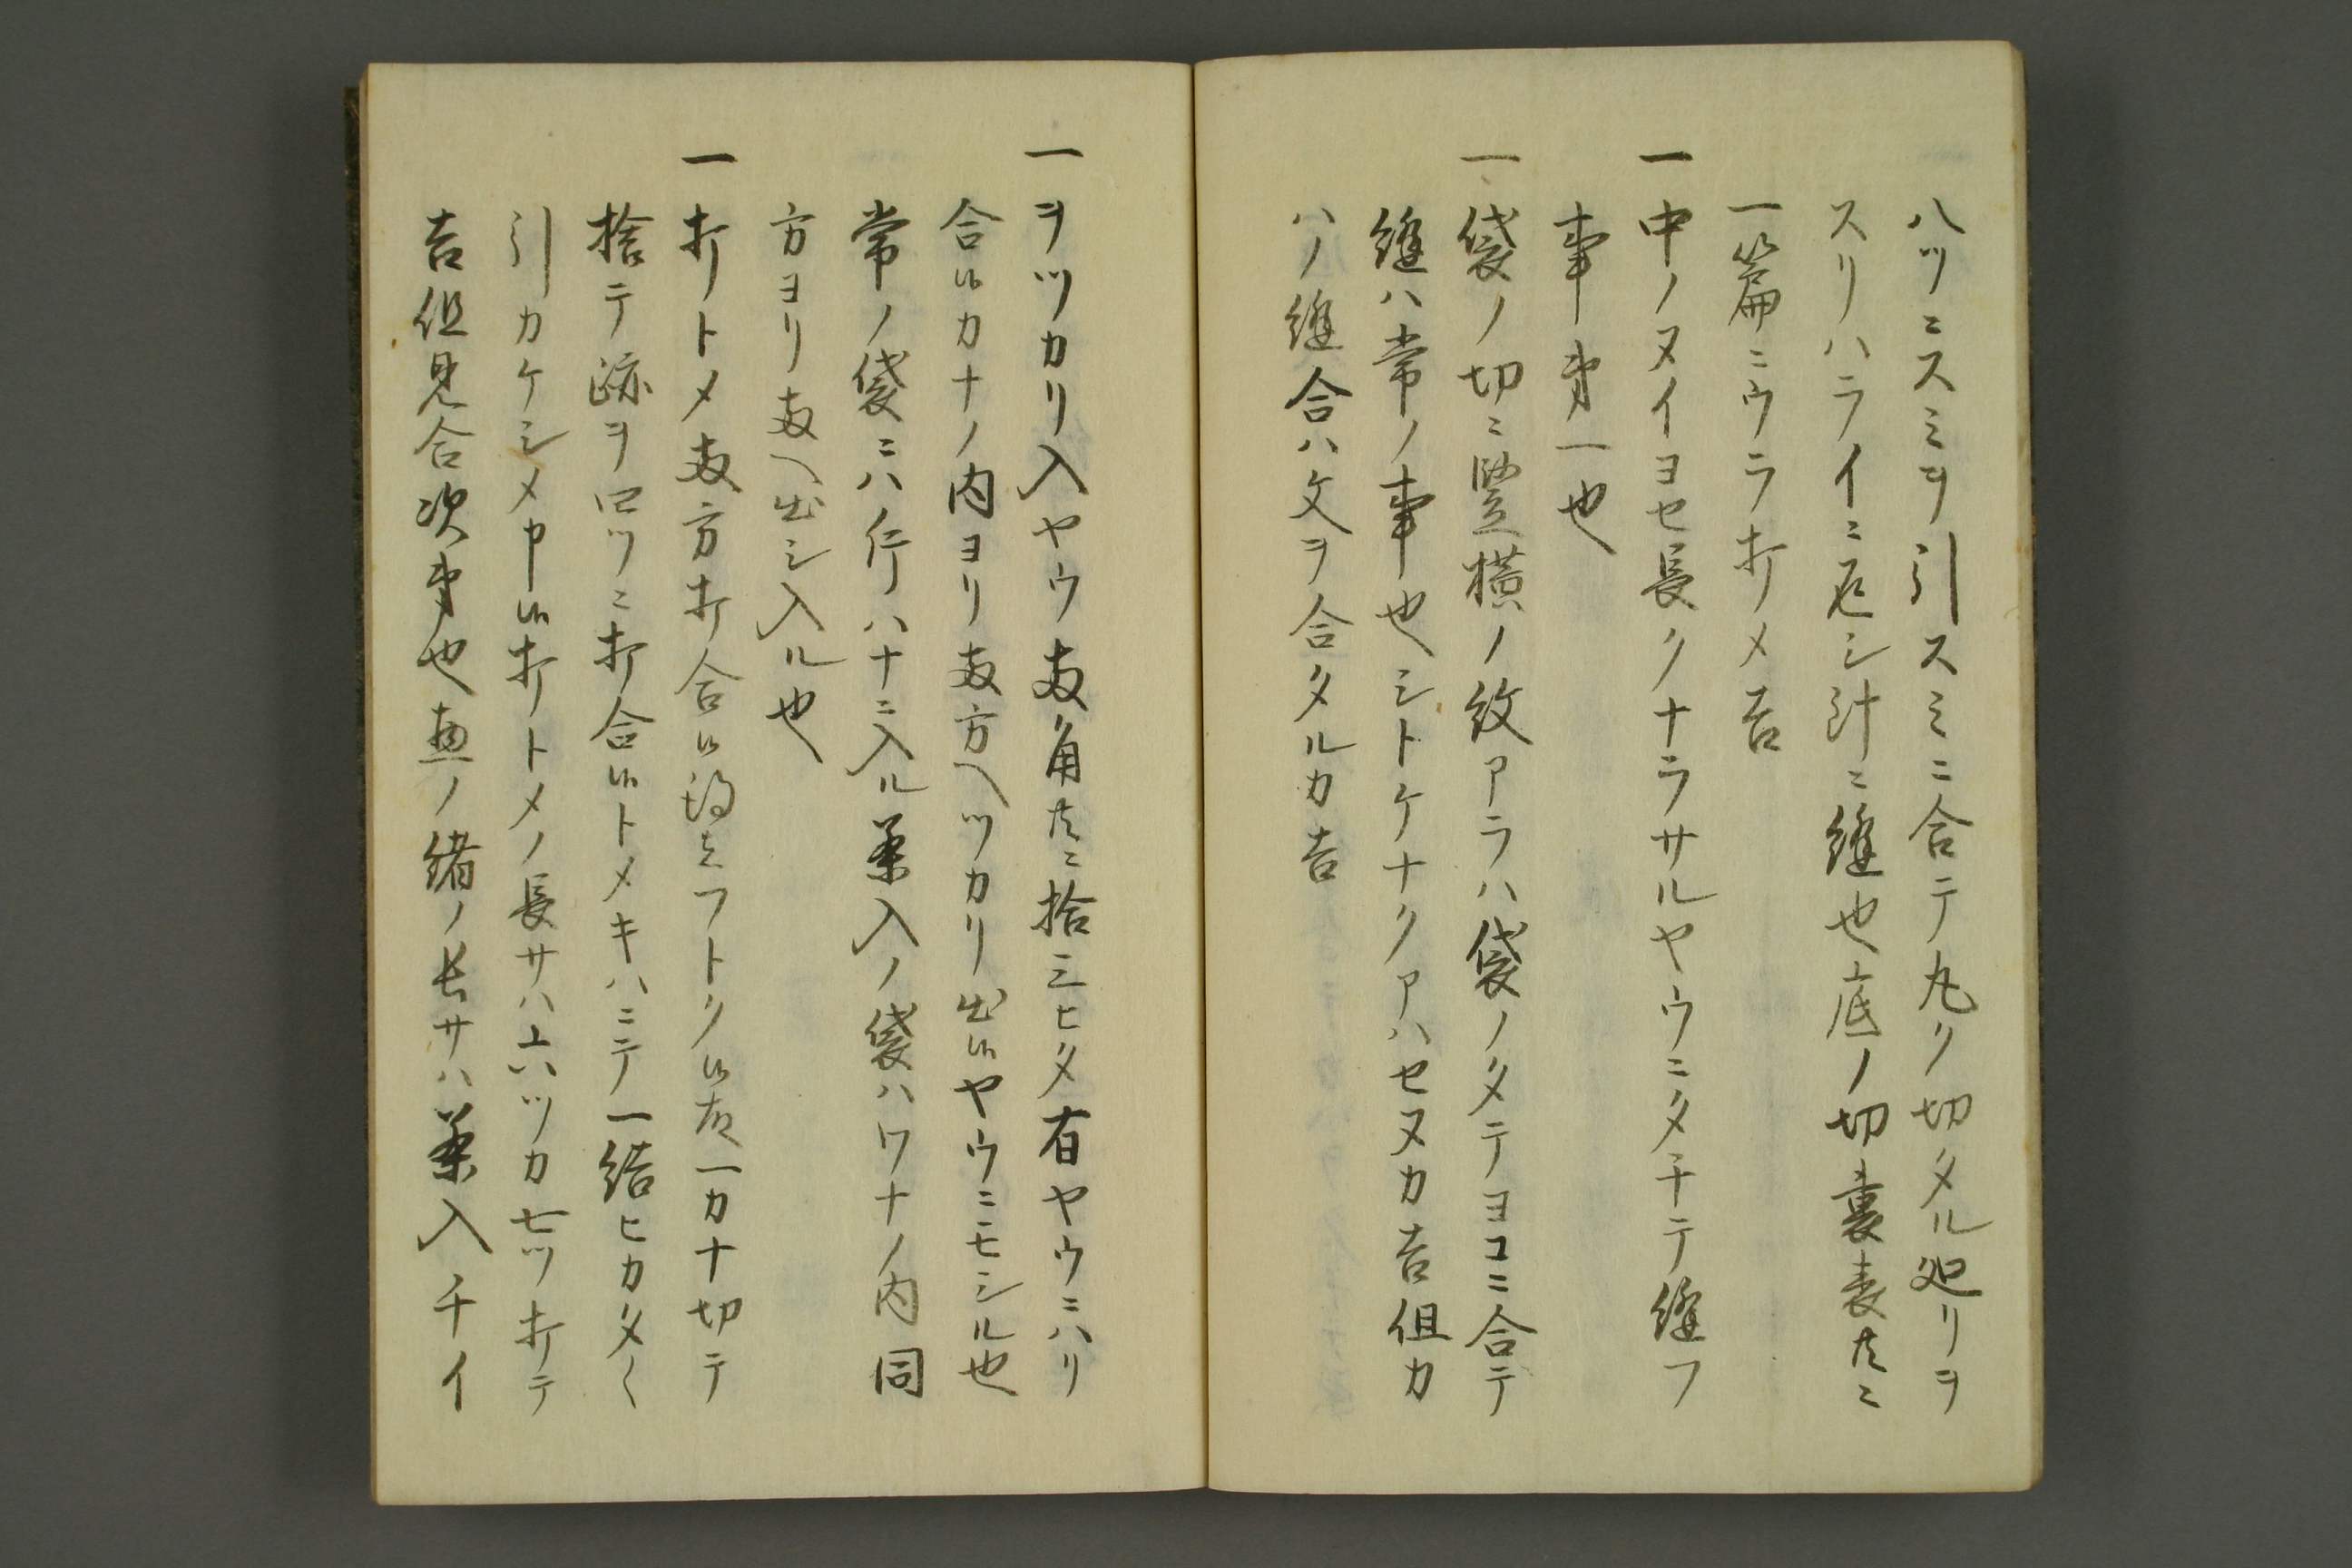 八ツニスミヲ引スミニ合テ丸ク切タル廻リヲ
スリハライニ返シ計ニ縫也底ノ切裏表共ニ
一篇ニウラ打メ吉
一中ノヌイヨセ長クナラサルヤウニタチテ縫フ
事第一也
一袋ノ切ニ竪横ノ紋アラハ袋ノタテヨコニ合テ
縫ハ常ノ事也シトケナクアハセヌカ吉但カ
ハノ縫合ハ文ヲ合タルカ吉
一ヲツカリ入ヤウ両角共ニ拾三ヒタ有ヤウニハリ
合候カナノ内ヨリ両方ヘツカリ出候ヤウニモシル也
常ノ袋ニハ行ハナニ入ル茶入ノ袋ハワナノ内同
方ヨリ両ヘ出シ入ル也
一打トメ両方打合候フトク候左一カナ切テ
捨テ跡ヲ四ツニ打合候トメキハニテ一結ヒカタク
引カケシメ申候打トメノ長サハ六ツカ七ツ打テ
吉但見合次第也ノ緒ノ長サハ茶入チイ